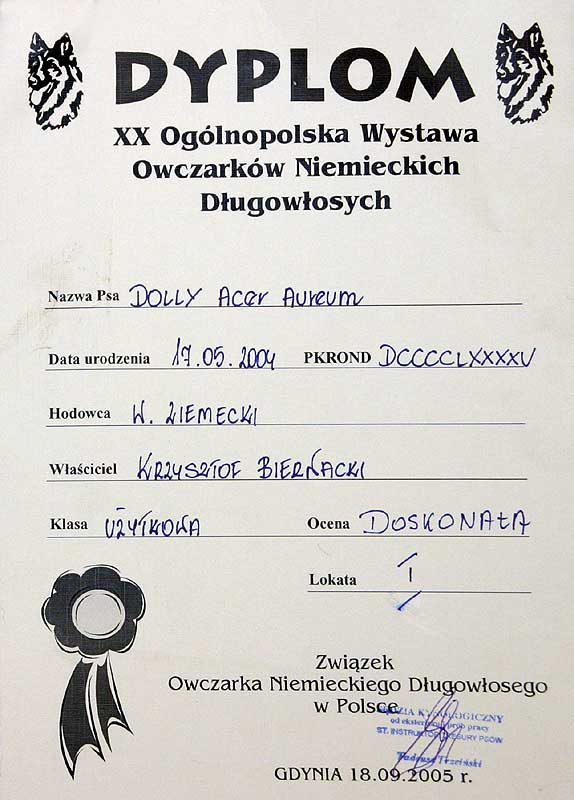 DYPLOM
XX Ogólnopolska Wystawa
Owczarków Niemieckich
Długowłosych
Nazwa Psa DOLLY Acer Aureum
Data urodzenia 17.05.2004 PKROND DCCCCLXXXXV
Hodowca W. ZIEMECKI
Właściciel KRZYSZTOF BIERNACKI
Klasa UŻYTKOWA Ocena DOSKONAŁA
Lokata I
Związek
Owczarka Niemieckiego Długowłosego
w Polsce
SĘDZIA KYNOLOGICZNY
od eksterieru i prób pracy
ST. INSTRUKTOR TRESURY PSÓW
Tadeusz Trzciński
GDYNIA 18.09.2005 r.